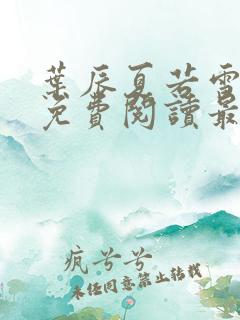 葉辰夏若雪
免費閱讀最
疯兮兮
未经同意禁止转载